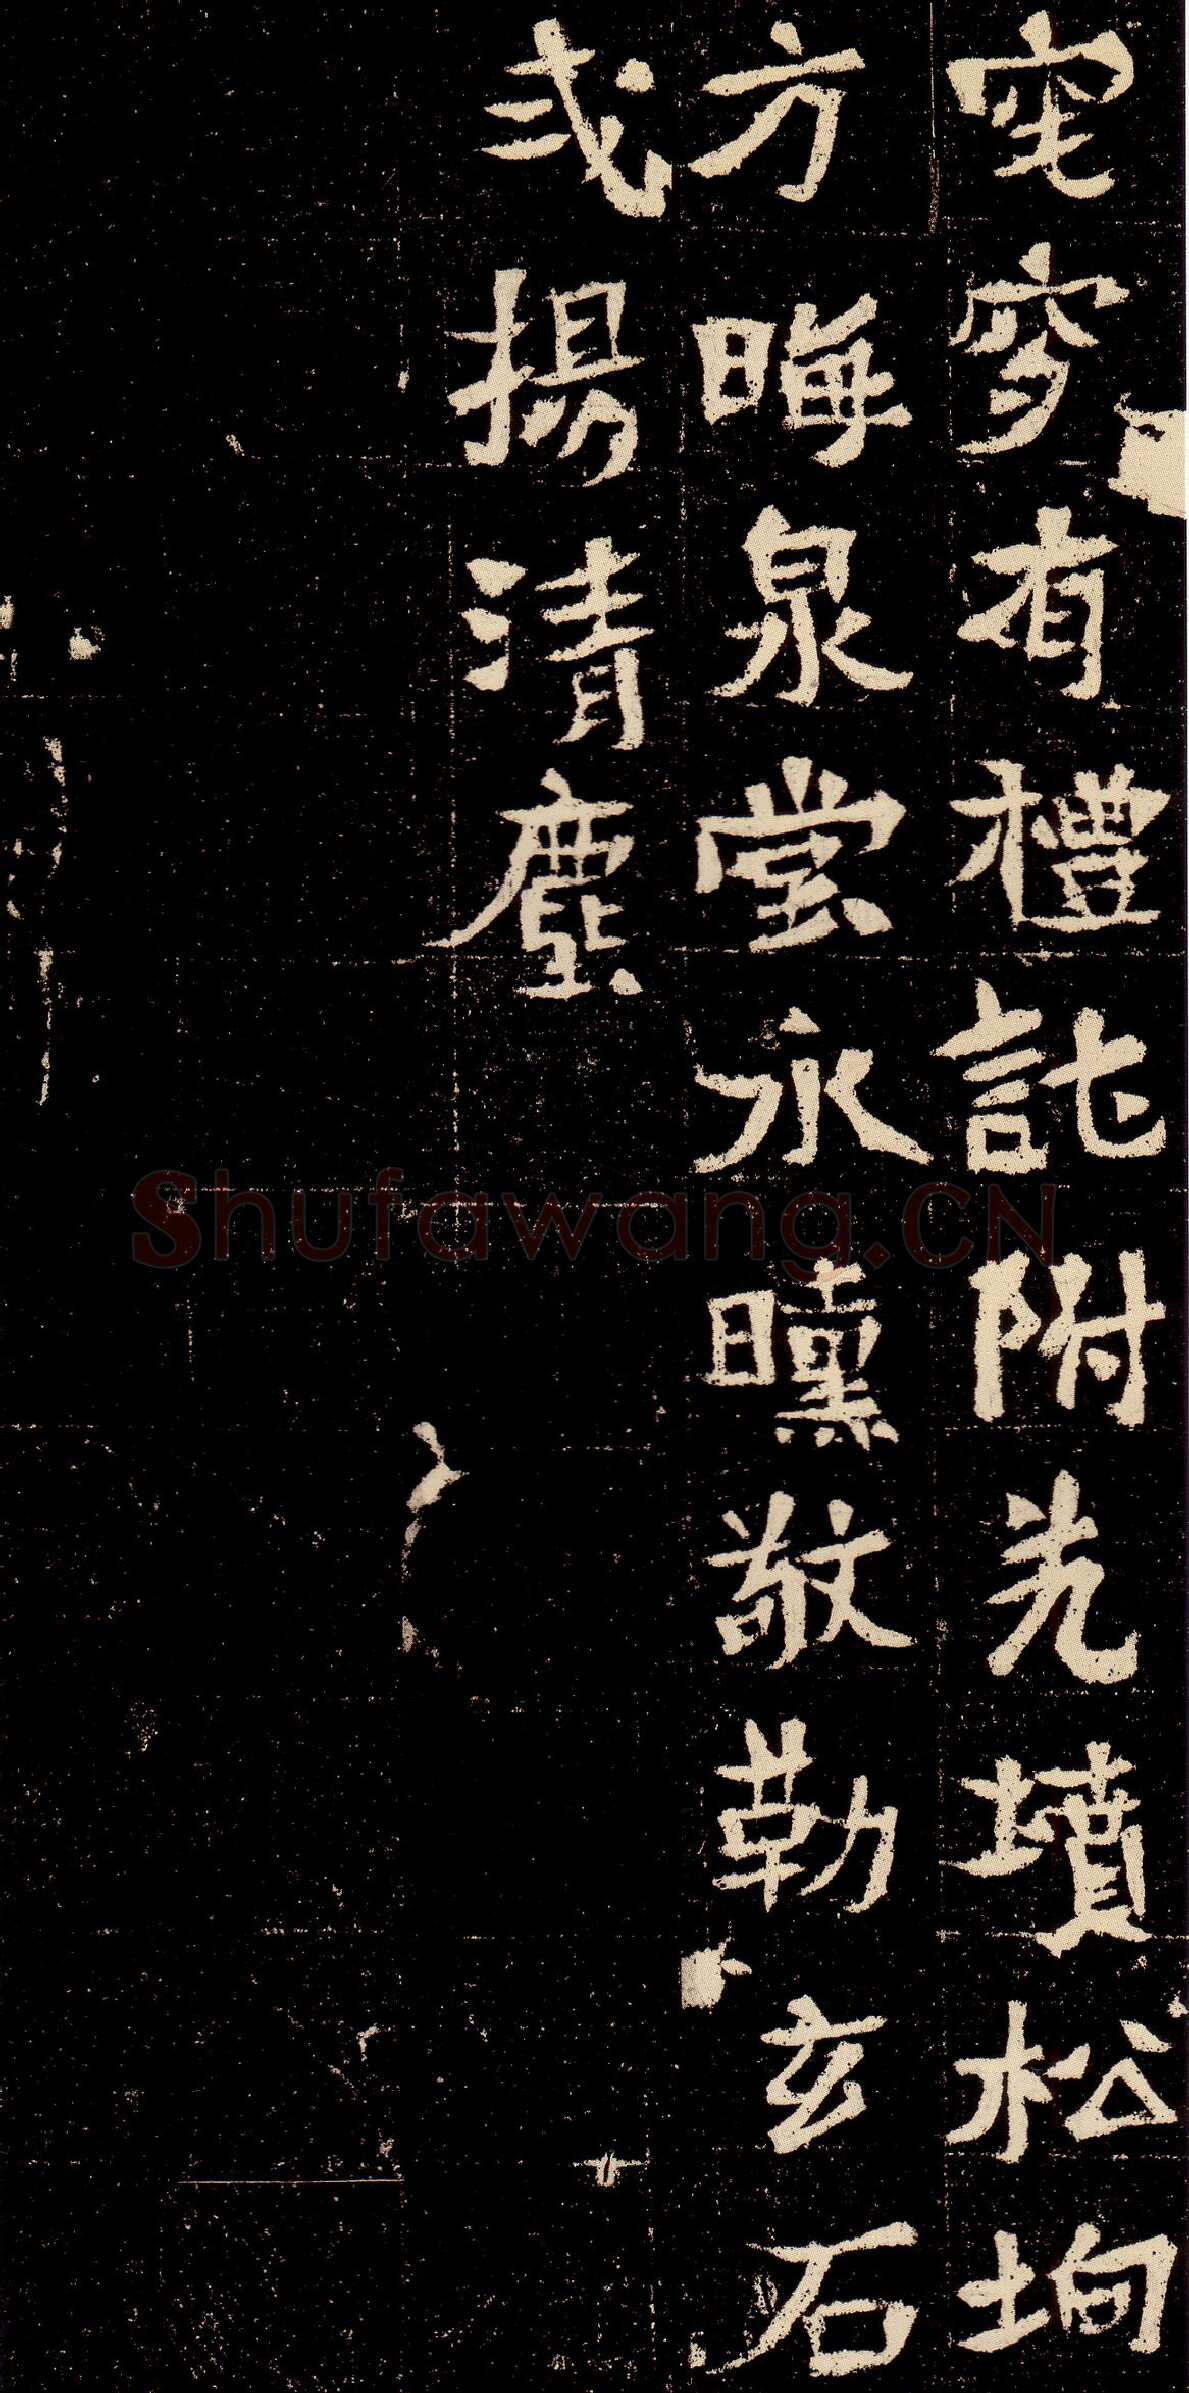 窀穸有禮託附先墳松坰
方晦泉堂永曛敬勒玄石
式揚清塵
Shufawang.CN